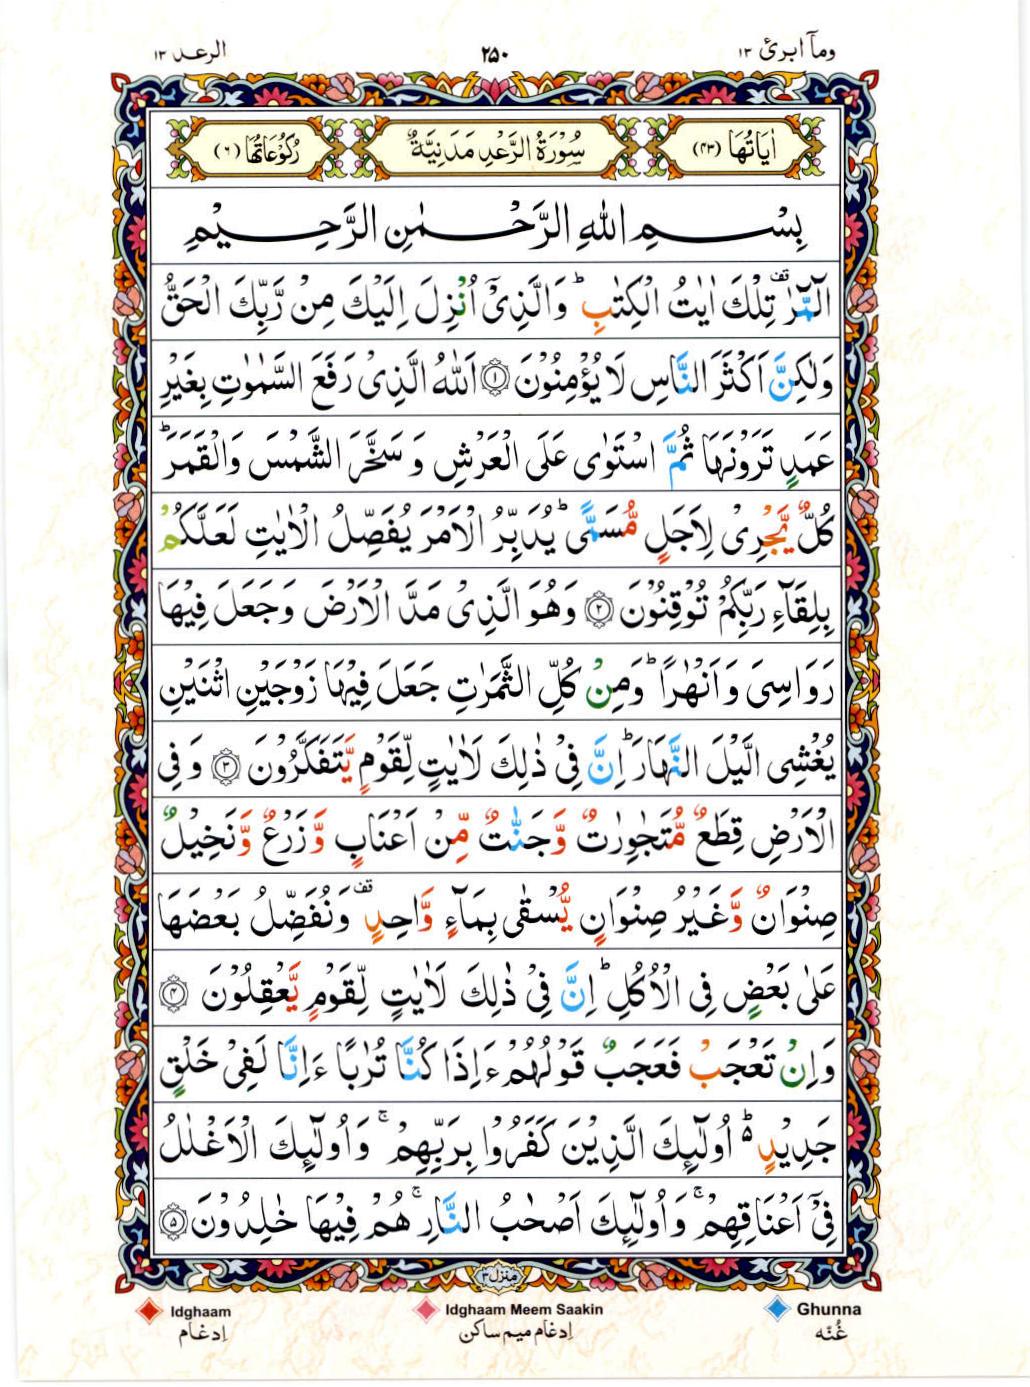 ومآ ابرئ ١٣
٢٥٠
الرعد ١٣
اٰيَاتُهَا (٤٣)
سُوْرَةُ الرَّعْدِ مَدَنِيَّةٌ
رُكُوْعَاتُهَا (٦)
بِسْمِ اللّٰهِ الرَّحْمٰنِ الرَّحِيْمِ
الٓمّٓرٰ ࣞ تِلْكَ اٰيٰتُ الْكِتٰبِ ؕ وَالَّذِيْۤ اُنْزِلَ اِلَيْكَ مِنْ رَّبِّكَ الْحَقُّ
وَلٰكِنَّ اَكْثَرَ النَّاسِ لَا يُؤْمِنُوْنَ ۝١ اَللّٰهُ الَّذِيْ رَفَعَ السَّمٰوٰتِ بِغَيْرِ
عَمَدٍ تَرَوْنَهَا ثُمَّ اسْتَوٰى عَلَى الْعَرْشِ وَ سَخَّرَ الشَّمْسَ وَالْقَمَرَ ؕ
كُلٌّ يَّجْرِيْ لِاَجَلٍ مُّسَمًّى ؕ يُدَبِّرُ الْاَمْرَ يُفَصِّلُ الْاٰيٰتِ لَعَلَّكُمْ
بِلِقَآءِ رَبِّكُمْ تُوْقِنُوْنَ ۝٢ وَهُوَ الَّذِيْ مَدَّ الْاَرْضَ وَجَعَلَ فِيْهَا
رَوَاسِيَ وَاَنْهٰرًا ؕ وَمِنْ كُلِّ الثَّمَرٰتِ جَعَلَ فِيْهَا زَوْجَيْنِ اثْنَيْنِ
يُغْشِى الَّيْلَ النَّهَارَ ؕ اِنَّ فِيْ ذٰلِكَ لَاٰيٰتٍ لِّقَوْمٍ يَّتَفَكَّرُوْنَ ۝٣ وَفِى
الْاَرْضِ قِطَعٌ مُّتَجٰوِرٰتٌ وَّجَنّٰتٌ مِّنْ اَعْنَابٍ وَّزَرْعٌ وَّنَخِيْلٌ
صِنْوَانٌ وَّغَيْرُ صِنْوَانٍ يُّسْقٰى بِمَآءٍ وَّاحِدٍ ࣞ وَنُفَضِّلُ بَعْضَهَا
عَلٰى بَعْضٍ فِى الْاُكُلِ ؕ اِنَّ فِيْ ذٰلِكَ لَاٰيٰتٍ لِّقَوْمٍ يَّعْقِلُوْنَ ۝٤
وَاِنْ تَعْجَبْ فَعَجَبٌ قَوْلُهُمْ ءَاِذَا كُنَّا تُرٰبًا ءَاِنَّا لَفِيْ خَلْقٍ
جَدِيْدٍ ؕ۬ اُولٰٓئِكَ الَّذِيْنَ كَفَرُوْا بِرَبِّهِمْ ۚ وَاُولٰٓئِكَ الْاَغْلٰلُ
فِيْۤ اَعْنَاقِهِمْ ۚ وَاُولٰٓئِكَ اَصْحٰبُ النَّارِ ۚ هُمْ فِيْهَا خٰلِدُوْنَ ۝٥
منزل ٣
Idghaam
Idghaam Meem Saakin
Ghunna
اِدغام
اِدغام میم ساکن
غُنّه